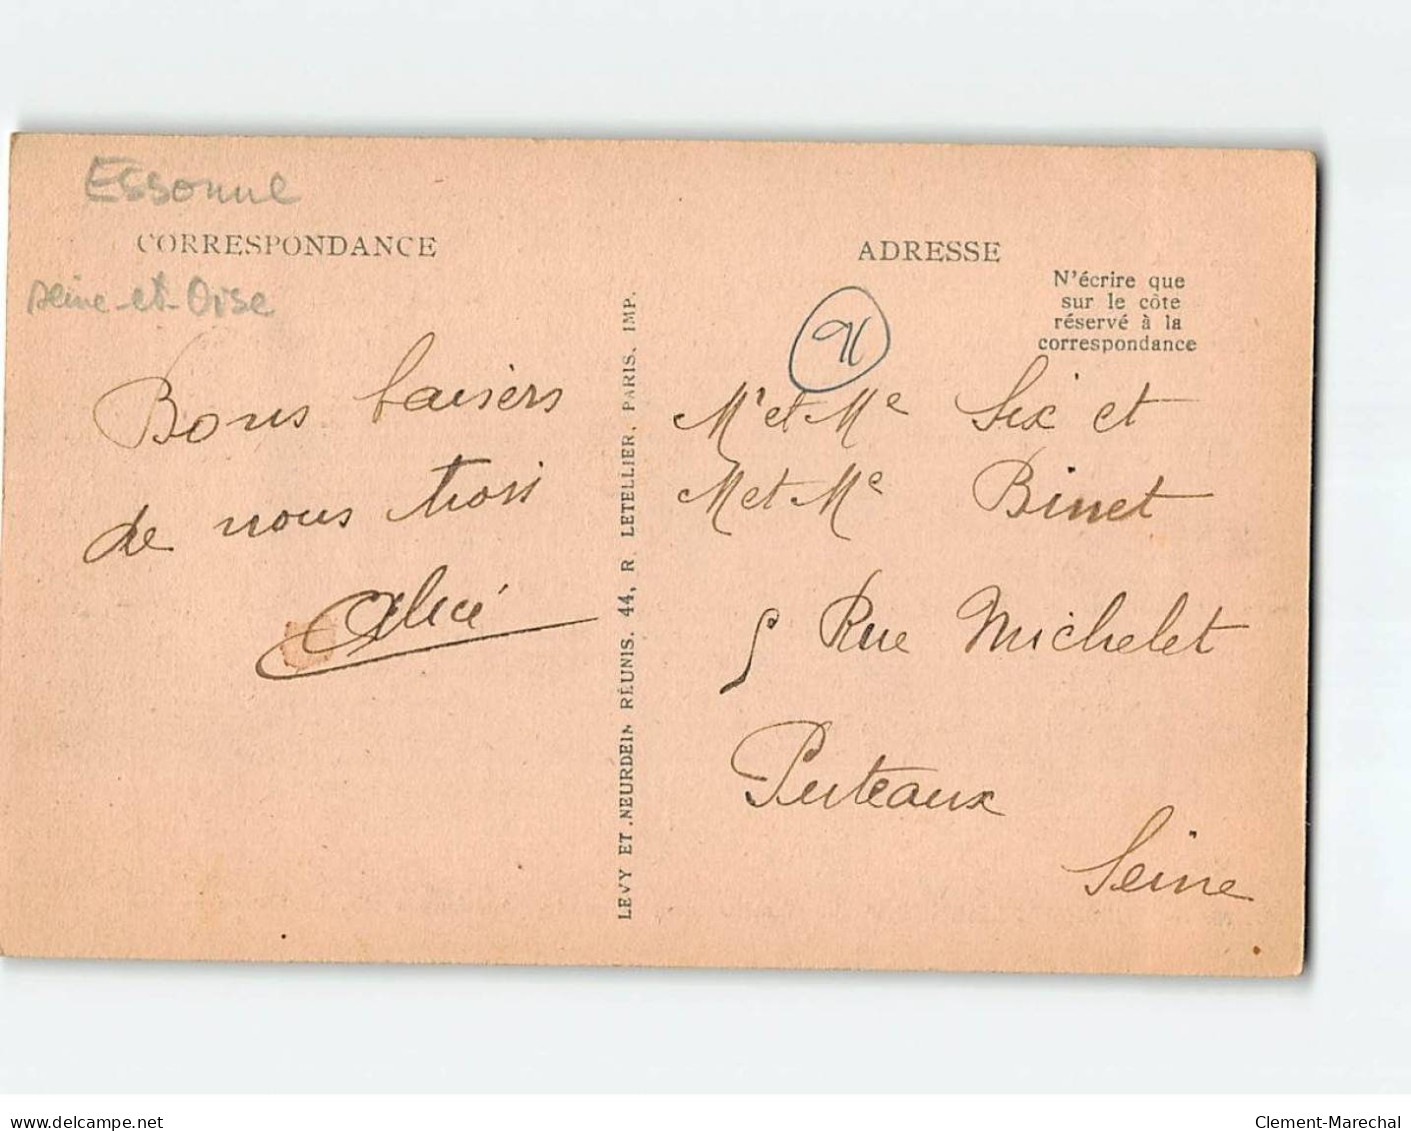 Essonne
CORRESPONDANCE
seine-et-Oise
Bons baisers
de nous trois
Alice
LEVY ET NEURDEIN RÉUNIS, 44, R. LETELLIER, PARIS, IMP.
ADRESSE
N'écrire que
sur le côte
réservé à la
correspondance
91
Mr et Me Six et
M et Me Binet
5 Rue Michelet
Puteaux
Seine
www.delcampe.net
Clement-Marechal